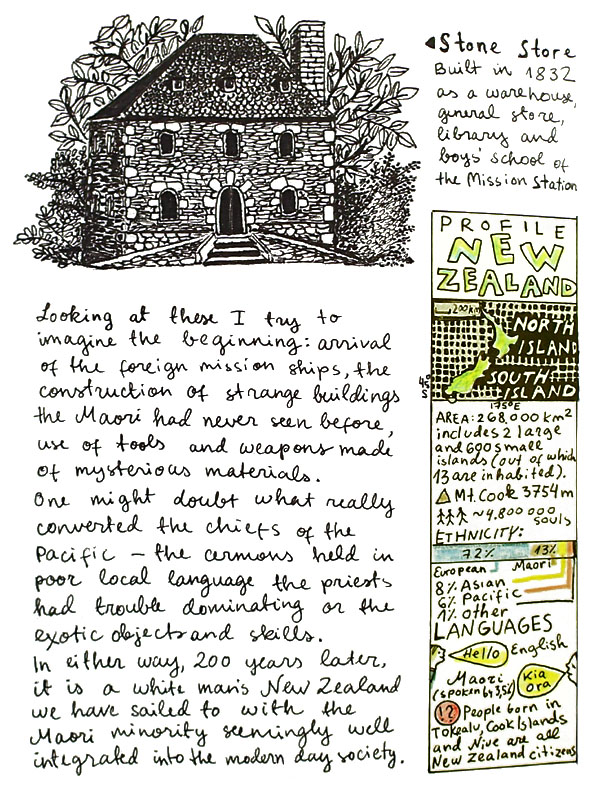 Stone Store
Built in 1832
as a warehouse,
general store,
library and
boys' school of
the Mission Station
Looking at these I try to
imagine the beginning: arrival
of the foreign mission ships, the
construction of strange buildings
the Maori had never seen before,
use of tools and weapons made
of mysterious materials.
One might doubt what really
converted the chiefs of the
Pacific – the cermons held in
poor local language the priests
had trouble dominating or the
exotic objects and skills.
In either way, 200 years later,
it is a white man's New Zealand
we have sailed to with the
Maori minority seemingly well
integrated into the modern day society.
PROFILE
NEW
ZEALAND
200 km
NORTH
ISLAND
SOUTH
ISLAND
45°
S
175°E
AREA: 268,000 km²
includes 2 large
and 600 small
islands (out of which
13 are inhabited).
Mt. Cook 3754m
~4.800 000
souls
ETHNICITY:
72% 13%
European Maori
8% Asian
6% Pacific
1% other
LANGUAGES
Hello English
Maori
(spoken by 3,5%)
Kia
ora
!?
People born in
Tokealu, Cook Islands
and Nive are all
New Zealand citizens